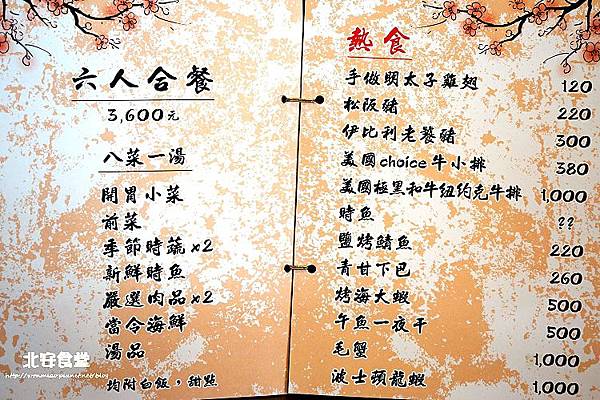 六人合餐
3,600元
八菜一湯
開胃小菜
前菜
季節時蔬x2
新鮮時魚
嚴選肉品x2
當令海鮮
湯品
均附白飯，甜點
北安食堂
熱食
手做明太子雞翅 120
松阪豬 220
伊比利老饕豬 300
美國choice牛小排 380
美國極黑和牛紐約克牛排 1,000
時魚 ??
鹽烤鯖魚 220
青甘下巴 260
烤海大蝦 500
午魚一夜干 500
毛蟹 1,000
波士頓龍蝦 1,000